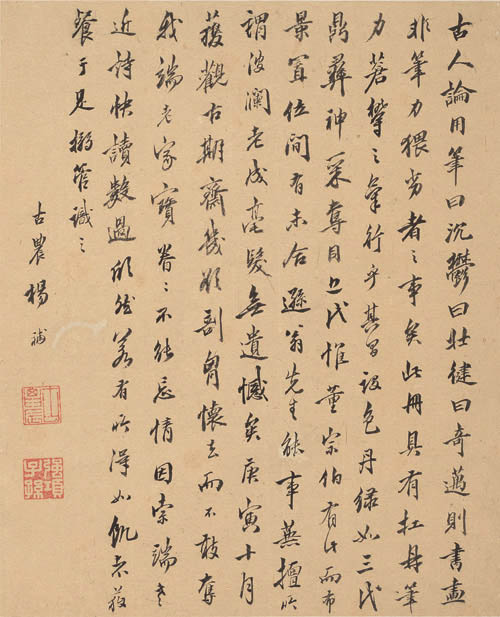 古人論用筆曰沉鬱曰壯健曰奇邁則書畫
非筆力猥劣者之事矣此冊具有扛鼎筆
力蒼欝之氣行乎其間設色丹綠如三代
鼎彝神采奪目近代惟董宗伯有此而布
景置位間有未合遜翁先生能事兼擅所
謂波瀾老成毫髮無遺憾矣庚寅十月
獲觀古期齋幾欲割胷懷去而不敢奪
我端老家寶眷〻不能忘情因索端老
近詩快讀數過欣然若有所得如飢者獲
餐于是搦管識之
古農楊補
強項子孫